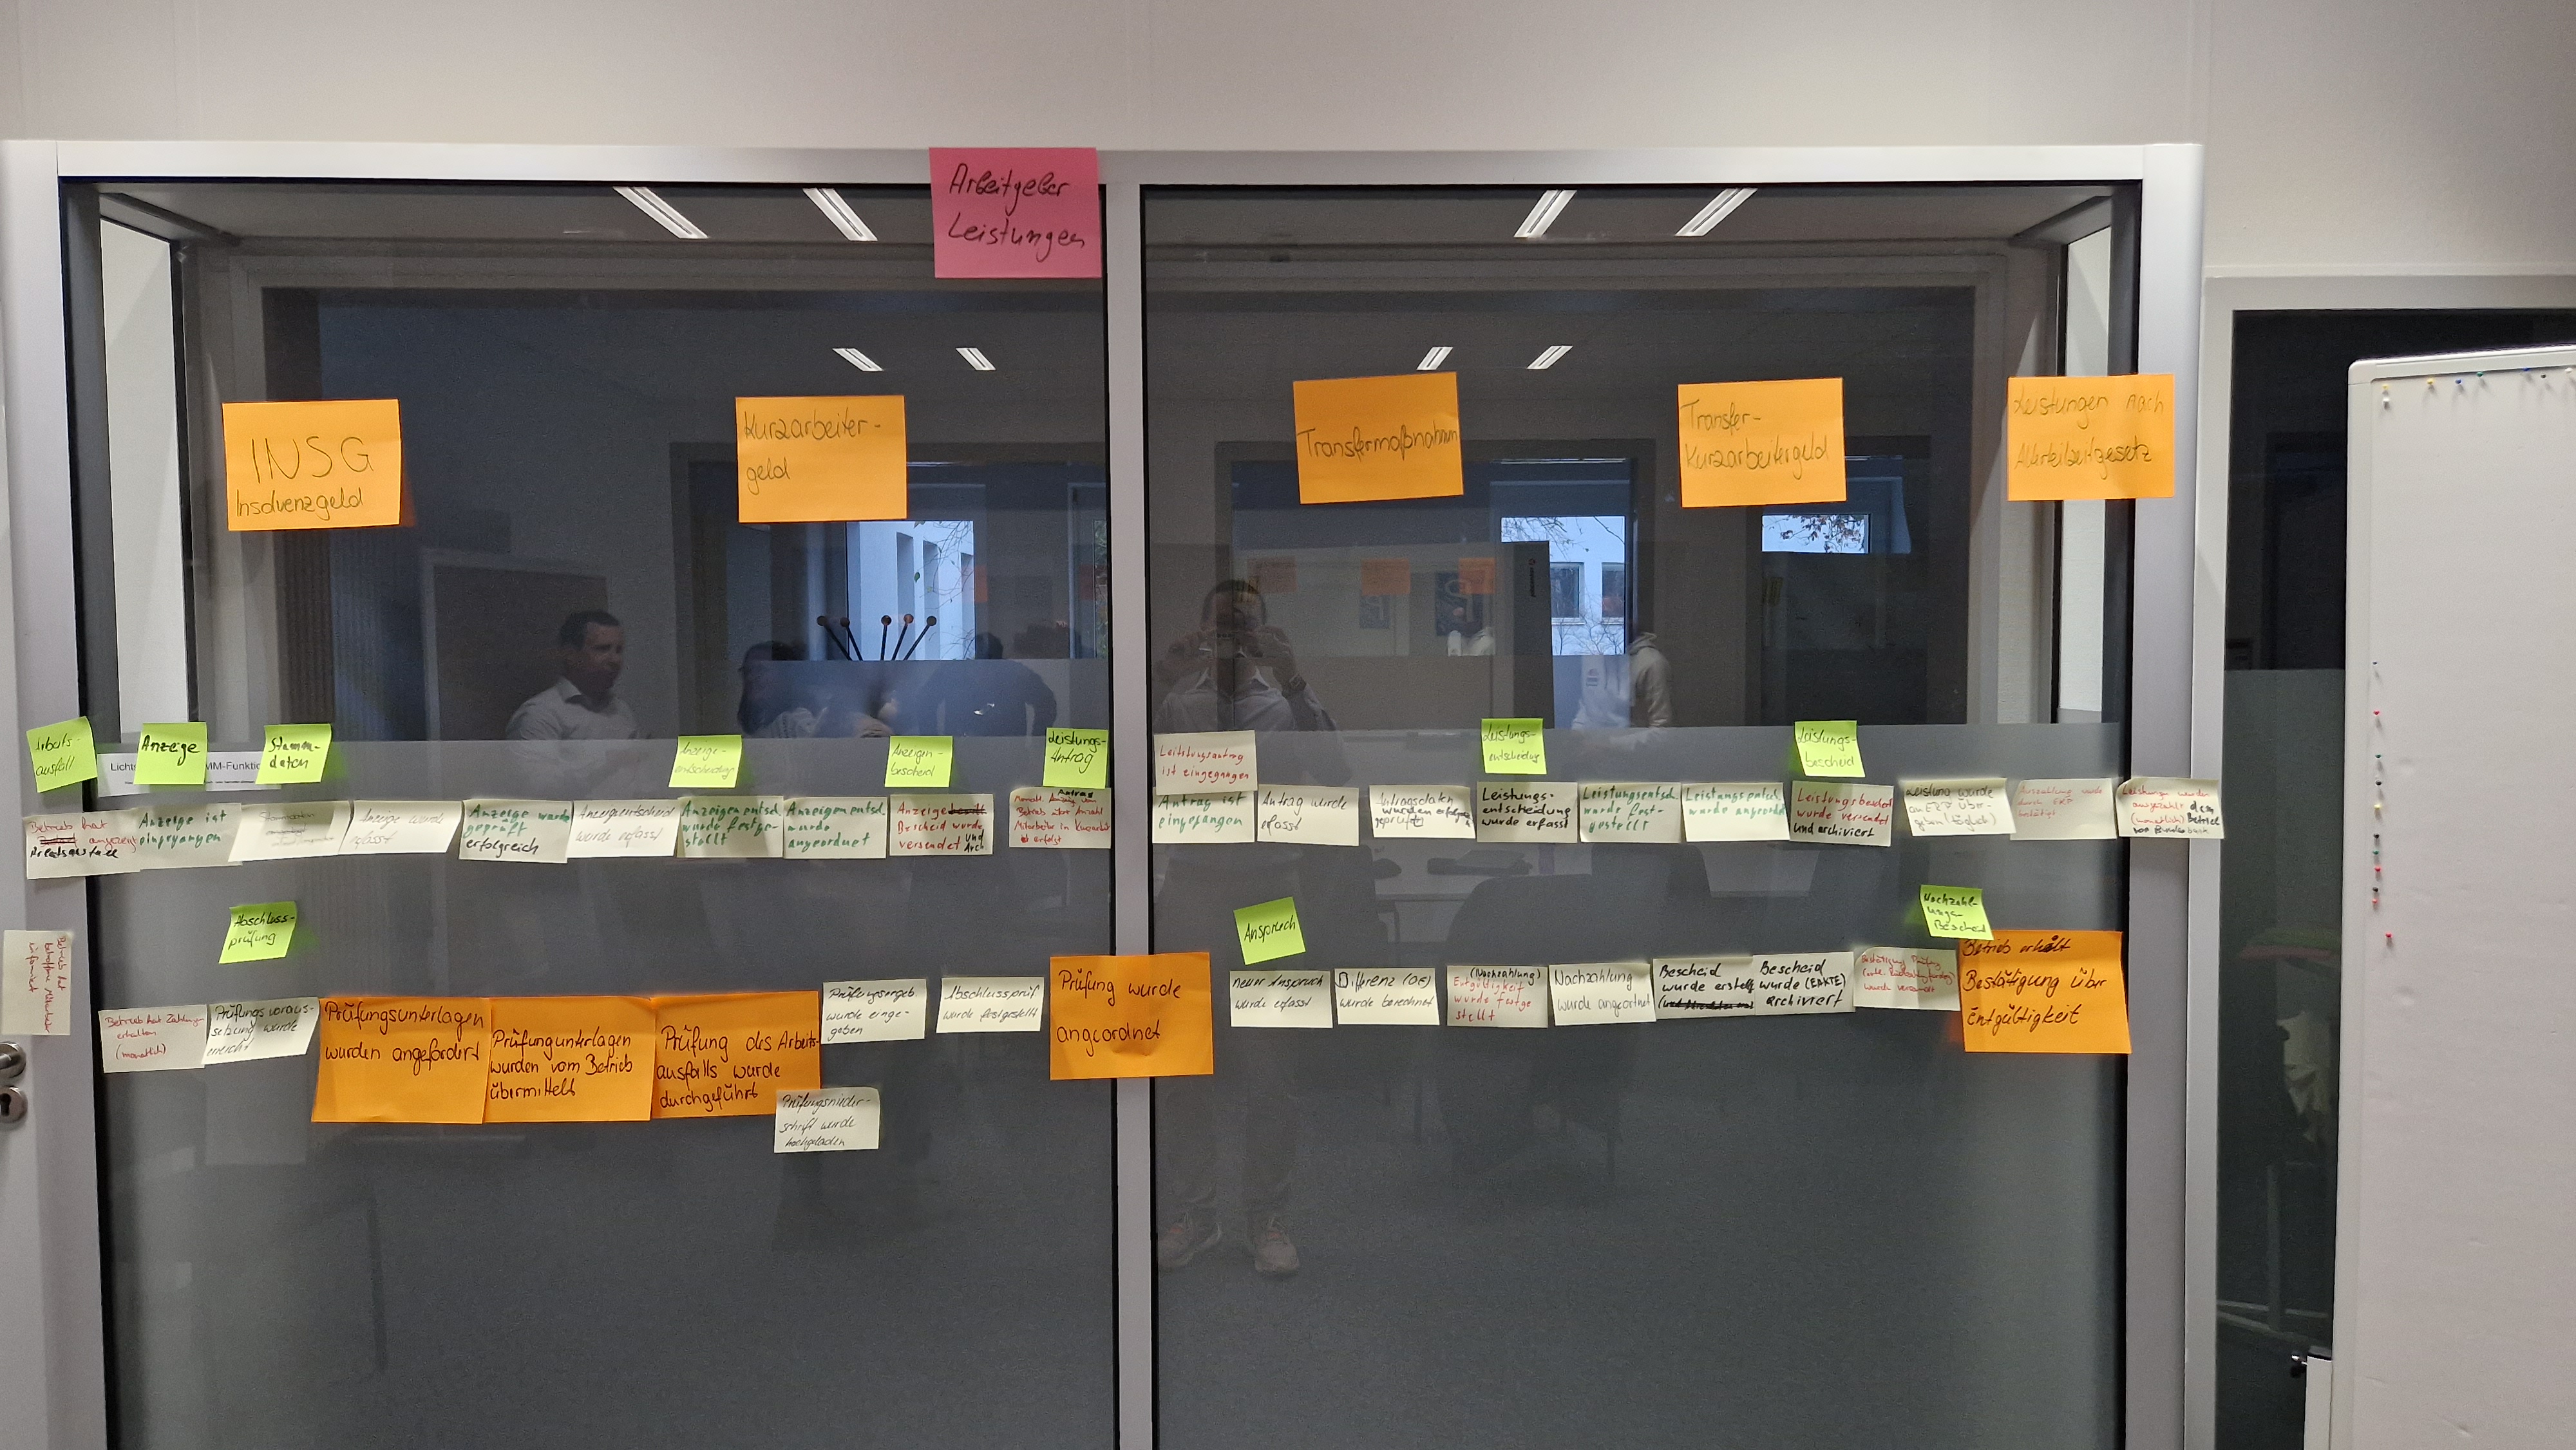 Arbeitgeber
Leistungen
INSG
Insolvenzgeld
Kurzarbeiter-
geld
Transfermaßnahmen
Transfer-
Kurzarbeitergeld
Leistungen nach
Altersteilzeitgesetz
Arbeits-
ausfall
Anzeige
Stamm-
daten
Anzeige-
entscheidung
Anzeigen-
bescheid
Leistungs-
Antrag
Leistungs-
entscheidung
Leistungs-
bescheid
Lichts
MM-Funkti
Betrieb hat
angezeigt
Arbeitsausfall
Anzeige ist
eingegangen
Stammdaten
Anzeige wurde
erfasst
Anzeige wurde
geprüft
erfolgreich
Anzeigentscheid
wurde erfasst
Anzeigenentsch.
wurde festge-
stellt
Anzeigenentsch.
wurde
angeordnet
Anzeige
Bescheid wurde
versendet und
Arch
Antrag
Betrieb über Anzahl
Mitarbeiter in
ist erfolgt
Leistungsantrag
ist eingegangen
Antrag ist
eingegangen
Antrag wurde
erfasst
Antragsdaten
wurden erfolgr.
geprüft
Leistungs-
entscheidung
wurde erfasst
Leistungsentsch.
wurde fest-
gestellt
Leistungsentsch.
wurde angeordnet
Leistungsbescheid
wurde versendet
und archiviert
Leistung wurde
an ERP über-
geben (täglich)
Auszahlung wurde
durch ERP
bestätigt
Leistungen wurden
ausgezahlt dem
(monatlich) Betrieb
von Bundesbank
Abschluss-
prüfung
Anspruch
Nachzahl-
ungs-
Bescheid
Betrieb hat
betroffene Mitarbeiter
informiert
Betrieb hat Zahlung
erhalten
(monatlich)
Prüfungsvoraus-
setzung wurde
erreicht
Prüfungsunterlagen
wurden angefordert
Prüfungunterlagen
wurden vom Betrieb
übermittelt
Prüfung des Arbeits-
ausfalls wurde
durchgeführt
Prüfungsergeb.
wurde einge-
geben
Prüfungsnieder-
schrift wurde
hochgeladen
Abschlussprüf
wurde festgestellt
Prüfung wurde
angeordnet
neuer Anspruch
wurde erfasst
Differenz (OE)
wurde berechnet
(Nachzahlung)
Entgültigkeit
wurde festge
stellt
Nachzahlung
wurde angeordnet
Bescheid
wurde erstellt
Bescheid
wurde (EAKTE)
archiviert
Bestätigung Prüfung
wurde versendet
Betrieb erhält
Bestätigung über
Entgültigkeit